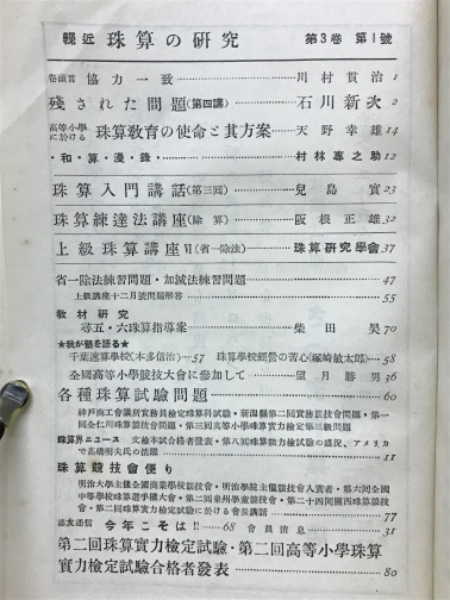 輓近 珠算の研究 第3卷 第1號
卷頭言 協力一致 川村貫治 1
残された問題(第四講) 石川新次 2
高等小學に於ける 珠算敎育の使命と其方案 天野幸雄 14
・和・算・漫・錄・ 村林專之助 12
珠算入門講話(第三回) 兒島實 23
珠算練達法講座(除算) 阪根正雄 32
上級珠算講座Ⅵ(省一除法) 珠算研究學會 37
省一除法練習問題・加減法練習問題 47
上級講座十二月號問題解答 55
敎材研究
尋五・六珠算指導案 柴田昊 70
★我が塾を語る★
千葉速算學校(本多信治) 57 珠算學校經營の苦心( 敏太郎) 58
全國高等小學競技大會に參加して 望月勝男 36
各種珠算試驗問題 60
神戸商工會議所實務員檢定珠算科試驗・新潟縣第二回實務競技會問題・第一
回全仁川珠算競技會問題・第三回高等小學珠算實力檢定第三級問題
珠算界ニュース 文檢本試合格者發表・第八回珠算能力檢定試驗の盛況、アメリカ
で高橋明夫氏の活躍 11
珠算競技會便り
明治大學主催全國商業學校競技會・明治學院主催競技會入賞者・第六回全國
中等學校珠算選手權大會・第二回泉州學童競技會・第二十四回關西珠算競技
會・第二回珠算實力檢定試驗に於ける會長講話 77
誌友通信 今年こそは!! 68 會員消息 31
第二回珠算實力檢定試驗・第二回高等小學珠算
實力檢定試驗合格者發表 80